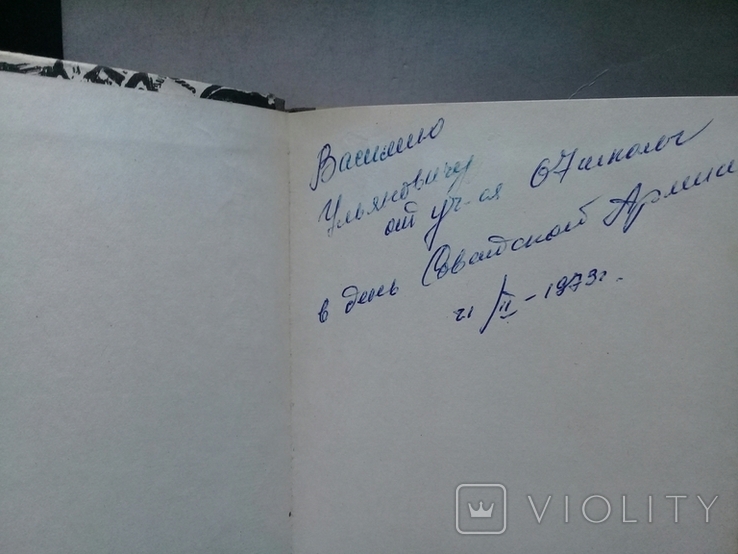 Василию
Ульяновичу
от уч-ся 67 школы
в день Советской Армии
21/II-1973г.
VIOLITY